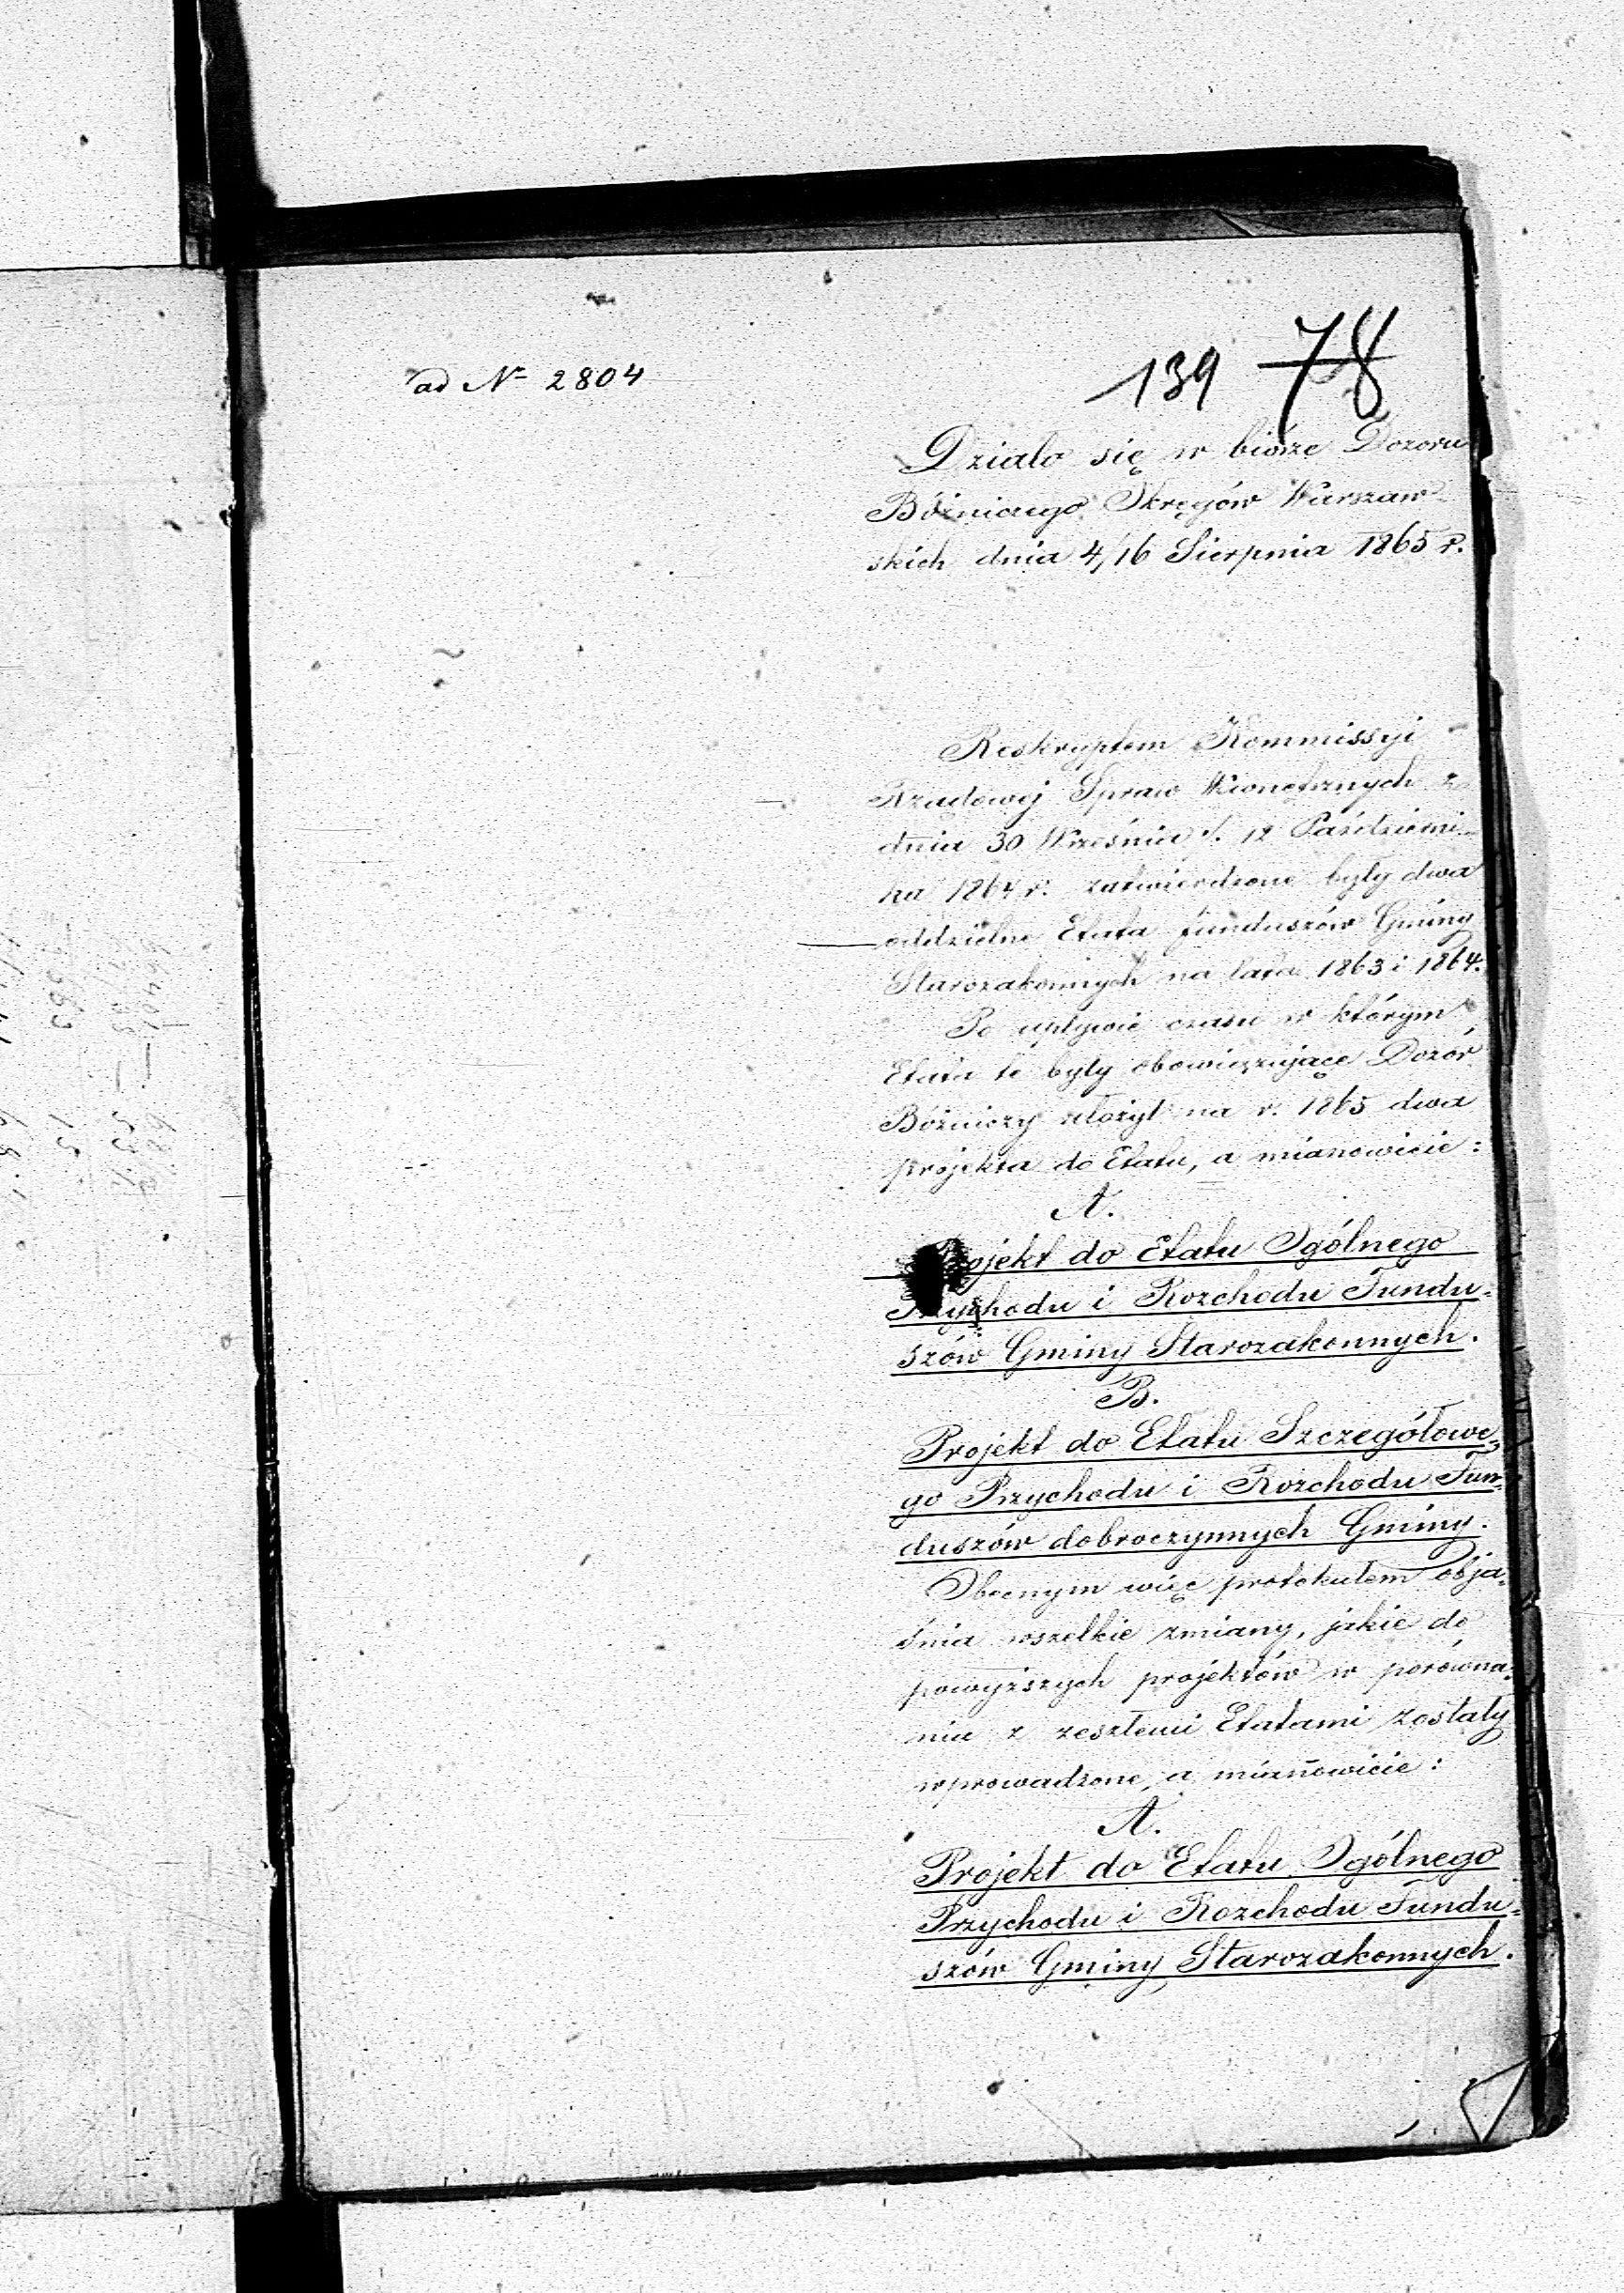 ad Nr 2804
139 78
Działo się w biórze Dozoru
Bóżniczego Okręgów Warszaw-
skich dnia 4/16 Sierpnia 1865 r.
Reskryptem Kommissyi
Rządowej Spraw Wewnętrznych z
dnia 30 Września / 12 Październi-
ka 1864 r. zatwierdzone były dwa
oddzielne Etata funduszów Gminy
Starozakonnych na lata 1863 i 1864.
Po upływie czasu w którym
Etata te były obowiązujące Dozór
Bóżniczy ułożył na r. 1865 dwa
projekta do Etatu, a mianowicie:
A.
Projekt do Etatu Ogólnego
Przychodu i Rozchodu Fundu-
szów Gminy Starozakonnych.
B.
Projekt do Etatu Szczegółowe-
go Przychodu i Rozchodu Fun-
duszów dobroczynnych Gminy.
Obecnym więc protokułem obja-
śnia wszelkie zmiany, jakie do
powyższych projektów w porówna-
niu z zeszłemi Etatami zostały
wprowadzone, a mianowicie:
A.
Projekt do Etatu Ogólnego
Przychodu i Rozchodu Fundu-
szów Gminy Starozakonnych.